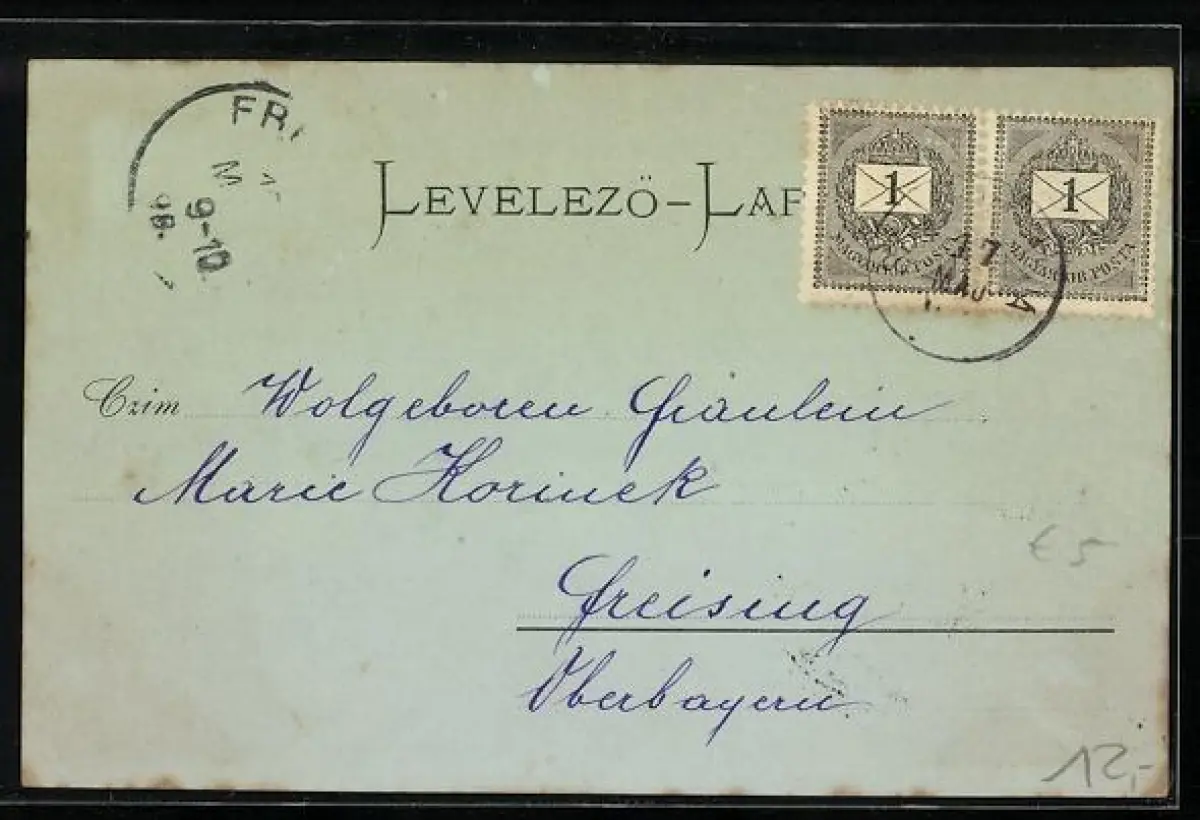 FR
M
9-10
98
LEVELEZŐ-LAP
1
MAGYAR KIR. POSTA
1
MAGYAR KIR. POSTA
17
MAJ
A
Czim Wolgeboren Fräulein
Marie Korinek
€ 5
Freising
Oberbayern
12,-